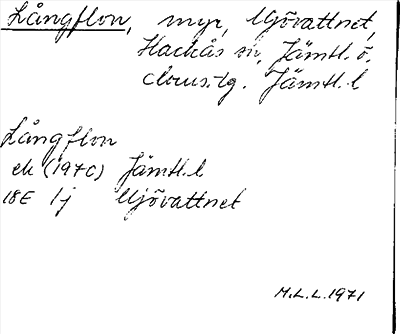 Långflon, myr, Mjövattnet,
Hackås sn, Jämtl. ö.
doms.-lg. Jämtl. l
Långflon
ek (1970) Jämtl. l
18E 1j Mjövattnet
M.L.L. 1971